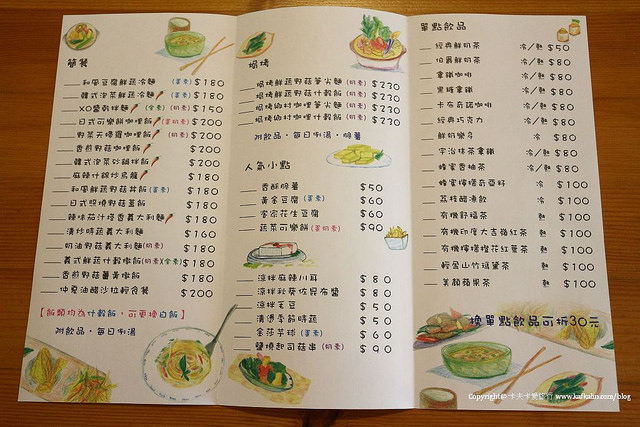 簡餐
和風豆腐鮮蔬冷麵 (蛋素) $180
韓式泡菜鮮蔬冷麵 (蛋素) $180
XO醬乾拌麵 (全素) (奶素) $150
日式可樂餅咖哩飯 (蛋奶素) $200
野菜天婦羅咖哩飯 (奶素) $200
香煎野菇咖哩飯 $200
韓式泡菜砂鍋拌飯 $200
麻辣什錦炒烏龍 $180
和風鮮蔬野菇丼飯 (蛋素) $180
日式照燒野菇蓋飯 $180
辣味茄汁塔香義大利麵 $180
清炒時蔬義大利麵 $160
奶油野菇義大利麵 (奶素) $180
義式鮮蔬什穀燉飯 (奶素) (全素) $180
香煎野菇薑黃燉飯 $180
仲夏油醋沙拉輕食餐 $200
【飯類均為什穀飯，可更換白飯】
附飲品・每日例湯
焗烤
焗烤鮮蔬野菇筆尖麵 (奶素) $230
焗烤鮮蔬野菇什穀飯 (奶素) $230
焗烤奶村咖哩筆尖麵 (奶素) $230
焗烤奶村咖哩什穀飯 (奶素) $230
附飲品・每日例湯・脆薯
人氣小點
香酥脆薯 $50
黃金豆腐 (蛋素) $60
客家花生豆腐 $60
蔬菜可樂餅 (蛋奶素) $90
涼拌麻辣川耳 $80
涼拌秋葵佐昆布醬 $80
涼拌毛豆 $50
清燙季節時蔬 $50
金莎芋球 (蛋素) $60
鹽燒起司菇串 (奶素) $90
單點飲品
經典鮮奶茶 冷/熱 $50
伯爵鮮奶茶 冷/熱 $80
拿鐵咖啡 冷/熱 $80
黑糖拿鐵 冷/熱 $80
卡布奇諾咖啡 冷/熱 $80
經典巧克力 冷/熱 $80
鮮奶樂多 冷 $80
宇治抹茶拿鐵 冷/熱 $80
蜂蜜香柚茶 冷/熱 $80
蜂蜜檸檬奇亞籽 冷 $100
荔枝醋凍飲 冷 $100
有機舒福茶 熱 $100
有機印度大吉嶺紅茶 熱 $100
有機檸檬橙花紅葉茶 熱 $100
輕盈山竹瑪黛茶 熱 $100
美顏蘋果茶 熱 $100
換單點飲品可折30元
Copyright© 卡夫卡愛旅行 www.kafkalin.com/blog